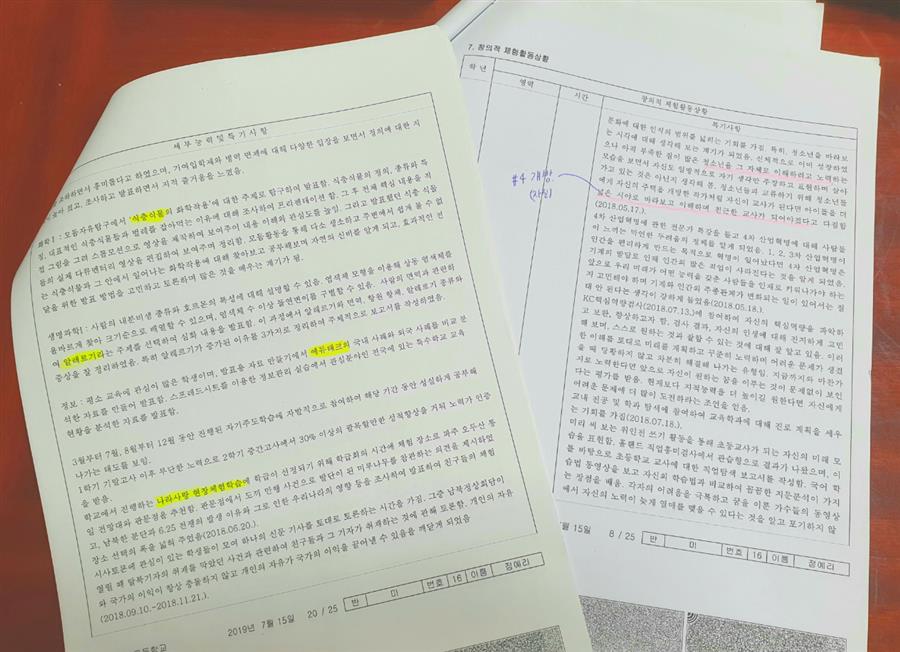 세부능력및특기사항
발표하면서 흥미롭다고 하였으며, 기여입학제와 병역 면제에 대해 다양한 입장을 보면서 정의에 대한 지
조사하고 발표하면서 지적 즐거움을 느꼈음.
화학Ⅰ: 모둠자유탐구에서 '식충식물의 화학작용'에 대한 주제로 탐구하여 발표함. 식충식물의 정의, 종류와 특
징, 대표적인 식충식물들과 벌레를 잡아먹는 이유에 대해 조사하여 프리젠테이션 함. 그 후 전체 핵심 내용을 직
접 그림을 그려 스톱모션으로 영상을 제작하여 보여주어 내용 이해와 관심도를 높임. 그리고 발표했던 식충 식물
들의 실제 다큐멘터리 영상을 편집하여 보여주며 정리함. 모둠활동을 통해 다소 생소하고 주변에서 쉽게 볼 수 없
는 식충식물과 그 안에서 일어나는 화학작용에 대해 찾아보고 공부해보며 자연의 신비를 알게 되고, 효과적인 전
달을 위한 발표 방법을 고민하고 토론하며 많은 것을 배우는 계기가 됨.
생명과학Ⅰ: 사람의 내분비샘 종류와 호르몬의 특성에 대해 설명할 수 있음. 염색체 모형을 이용해 상동 염색체를
올바르게 찾아 크기순으로 배열할 수 있으며, 염색체 수 이상으로 돌연변이를 구별할 수 있음. 사람의 면역과 관련하
여 알레르기라는 주제를 선택하여 심화 내용을 발표함. 이 과정에서 알레르기와 면역, 항원 항체, 알레르기 종류와
증상을 잘 정리하였음. 특히 알레르기가 증가된 이유를 3가지로 정리하여 주체적으로 보고서를 작성하였음.
정보 : 평소 교육에 관심이 많은 학생이며, 발표용 자료 만들기에서 에듀테크의 국내 사례와 외국 사례를 비교 분
석한 자료를 만들어 발표함. 스프레드시트를 이용한 정보관리 실습에서 관심분야인 전국에 있는 특수학교 교육
현황을 분석한 자료를 발표함.
3월부터 7월, 8월부터 12월 동안 진행된 자기주도학습에 자발적으로 참여하여 해당 기간 동안 성실하게 공부해
나가는 태도를 보임.
1학기 기말고사 이후 부단한 노력으로 2학기 중간고사에서 30% 이상의 괄목할만한 성적향상을 거둬 노력가 인증
을 받음.
학교에서 진행하는 나라사랑 현장체험학습에 학급이 선정되기 위해 학급회의 시간에 체험 장소로 파주 오두산 통
일 전망대와 판문점을 추천함. 판문점에서 도끼 만행 사건으로 발단이 된 미루나무를 참관하는 의견을 제시하였
고, 남북한 분단과 6.25 전쟁의 발생 이유와 그로 인한 우리나라의 영향 등을 조사하여 발표하여 친구들의 체험
장소 선택의 폭을 넓혀 주었음(2018.06.20.).
시사토론에 관심이 있는 학생들이 모여 하나의 신문 기사를 토대로 토론하는 시간을 가짐. 그중 남북정상회담이
열릴 때 탈북기자의 취재를 막았던 사건과 관련하여 친구들과 그 기자가 취재하는 것에 관해 토론함. 개인의 자유
와 국가의 이익이 항상 충돌하지 않고 개인의 자유가 국가의 이익을 끌어낼 수 있음을 깨닫게 되었음
(2018.09.10.-2018.11.21.).
2019년 7월 15일 20 / 25 반 미 번호 16 이름 정예리
등학교
7. 창의적 체험활동상황
학년
창의적 체험활동상황
영역
시간
특기사항
#4 개방
문화에 대한 인식의 범위를 넓히는 기회를 가짐. 특히, 청소년을 바라보
는 시각에 대해 생각해 보는 계기가 되었음. 신체적으로 이미 성장하였
으나 아직 부족한 점이 많은 청소년을 그 자체로 이해하려고 노력하는
모습을 보면서 자신도 일방적으로 자기 생각만 주장하고 표현하며 살아
가고 있는 것은 아닌지 생각해 봄. 청소년들과 교류하기 위해 청소년들
에게 자신의 주택을 개방한 작가처럼 자신이 교사가 된다면 아이들을 더
넓은 시야로 바라보고 이해하며 친근한 교사가 되어야겠다고 다짐함
(2018.05.17.).
4차 산업혁명에 관한 전문가 특강을 듣고 4차 산업혁명에 대해 사람들
이 느끼는 막연한 두려움의 정체를 알게 되었음. 1, 2, 3차 산업혁명이
인간을 편리하게 만드는 목적으로 혁명이 일어났다면 4차 산업혁명은
기계의 발달로 인해 인간의 많은 직업이 사라진다는 것을 알게 되었음.
앞으로 우리 미래가 어떤 능력을 갖춘 사람들을 인재로 키워나가야 하는
지 고민해야 하며 기계와 인간의 주종관계가 변화되는 일이 있어서는 절
대 안 된다는 생각이 강하게 들었음(2018.05.18.).
KC핵심역량검사(2018.07.13.)에 참여하여 자신의 핵심역량을 파악하
고 보완, 향상하고자 함. 검사 결과, 자신의 인생에 대해 진지하게 고민
해 보며, 스스로 원하는 것과 잘할 수 있는 것에 대해 잘 알고 있음. 이러
한 이해를 토대로 미래를 계획하고 꾸준히 노력하며 어려운 문제가 생겼
을 때 당황하지 않고 차분히 해결해 나가는 유형임. 지금까지와 마찬가
지로 노력한다면 앞으로 자신이 원하는 꿈을 이루는 것이 문제없이 보인
다는 평가를 받음. 현재보다 지적능력을 더 높이길 원한다면 자신에게
어려운 문제에 더 많이 도전하라는 조언을 얻음.
교내 전공 및 학과 탐색에 참여하여 교육학과에 대해 진로 계획을 세우
는 기회를 가짐(2018.07.18.).
미리 써 보는 위인전 쓰기 활동을 통해 초등교사가 되는 자신의 미래 모
습을 표현함. 홀랜드 직업흥미검사에서 관습형으로 결과가 나왔으며, 이
를 바탕으로 초등학교 교사에 대한 직업탐색 보고서를 작성함. 국어 학
습법 동영상을 보고 자신의 학습법과 비교하여 꼼꼼한 지문분석이 가지
는 장점을 배움. 각자의 어려움을 극복하고 꿈을 이룬 가수들의 동영상
에서 자신의 노력이 늦게 열매를 맺을 수 있다는 것을 알고 포기하지 않
월 15일 8 / 25 반 미 번호 16 이름 정예리